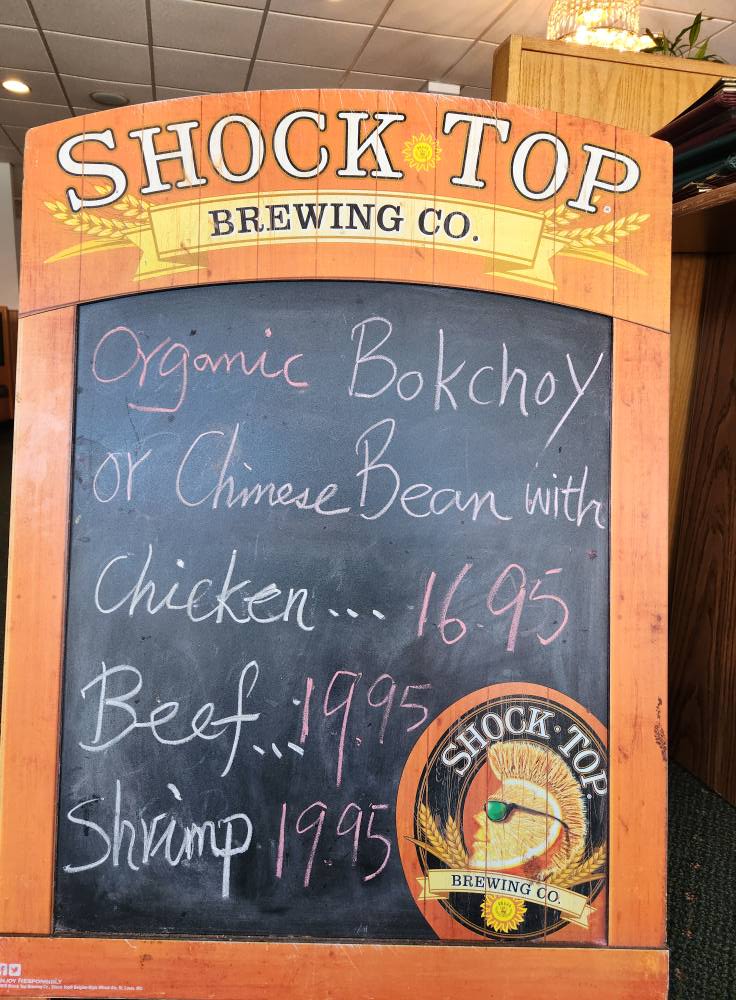 SHOCK TOP
BREWING CO.
Organic Bokchoy
or Chinese Bean with
Chicken... 16.95
Beef...19.95
Shrimp 19.95
SHOCK TOP
BREWING CO.
ENJOY RESPONSIBLY